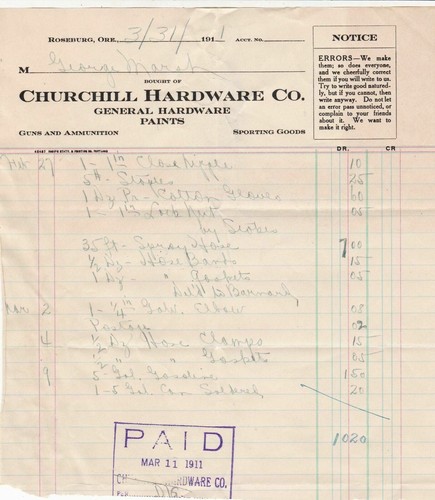 ROSEBURG, ORE. 3/31/ 1911 ACCT. No.
M George Marsh
BOUGHT OF
CHURCHILL HARDWARE CO.
GENERAL HARDWARE
PAINTS
GUNS AND AMMUNITION SPORTING GOODS
NOTICE
ERRORS—We make
them; so does everyone,
and we cheerfully correct
them if you will write to us.
Try to write good naturedly,
but if you cannot, then
write anyway. Do not let
an error pass unnoticed, or
complain to your friends
about it. We want to
make it right.
DR. CR
27 1 - 1 in Close Nipple 10
5# - Staples 25
1 Pr - Cotton Gloves 60
1 - 1 in Lock Nut 05
by
35 ft - Spray Hose 7 00
1/2 Dz - Hose Bands 15
1 Dz - " Gaskets 05
Mar 2 1 - 1/4 in Galv. Elbow 08
Postage 02
4 1/2 Dz Hose Clamps 15
1/2 " " Gaskets 05
9 5 - Gal Gasoline 1 50
1 - 5 Gal. Can 20
10 20
PAID
MAR 11 1911
HARDWARE CO.